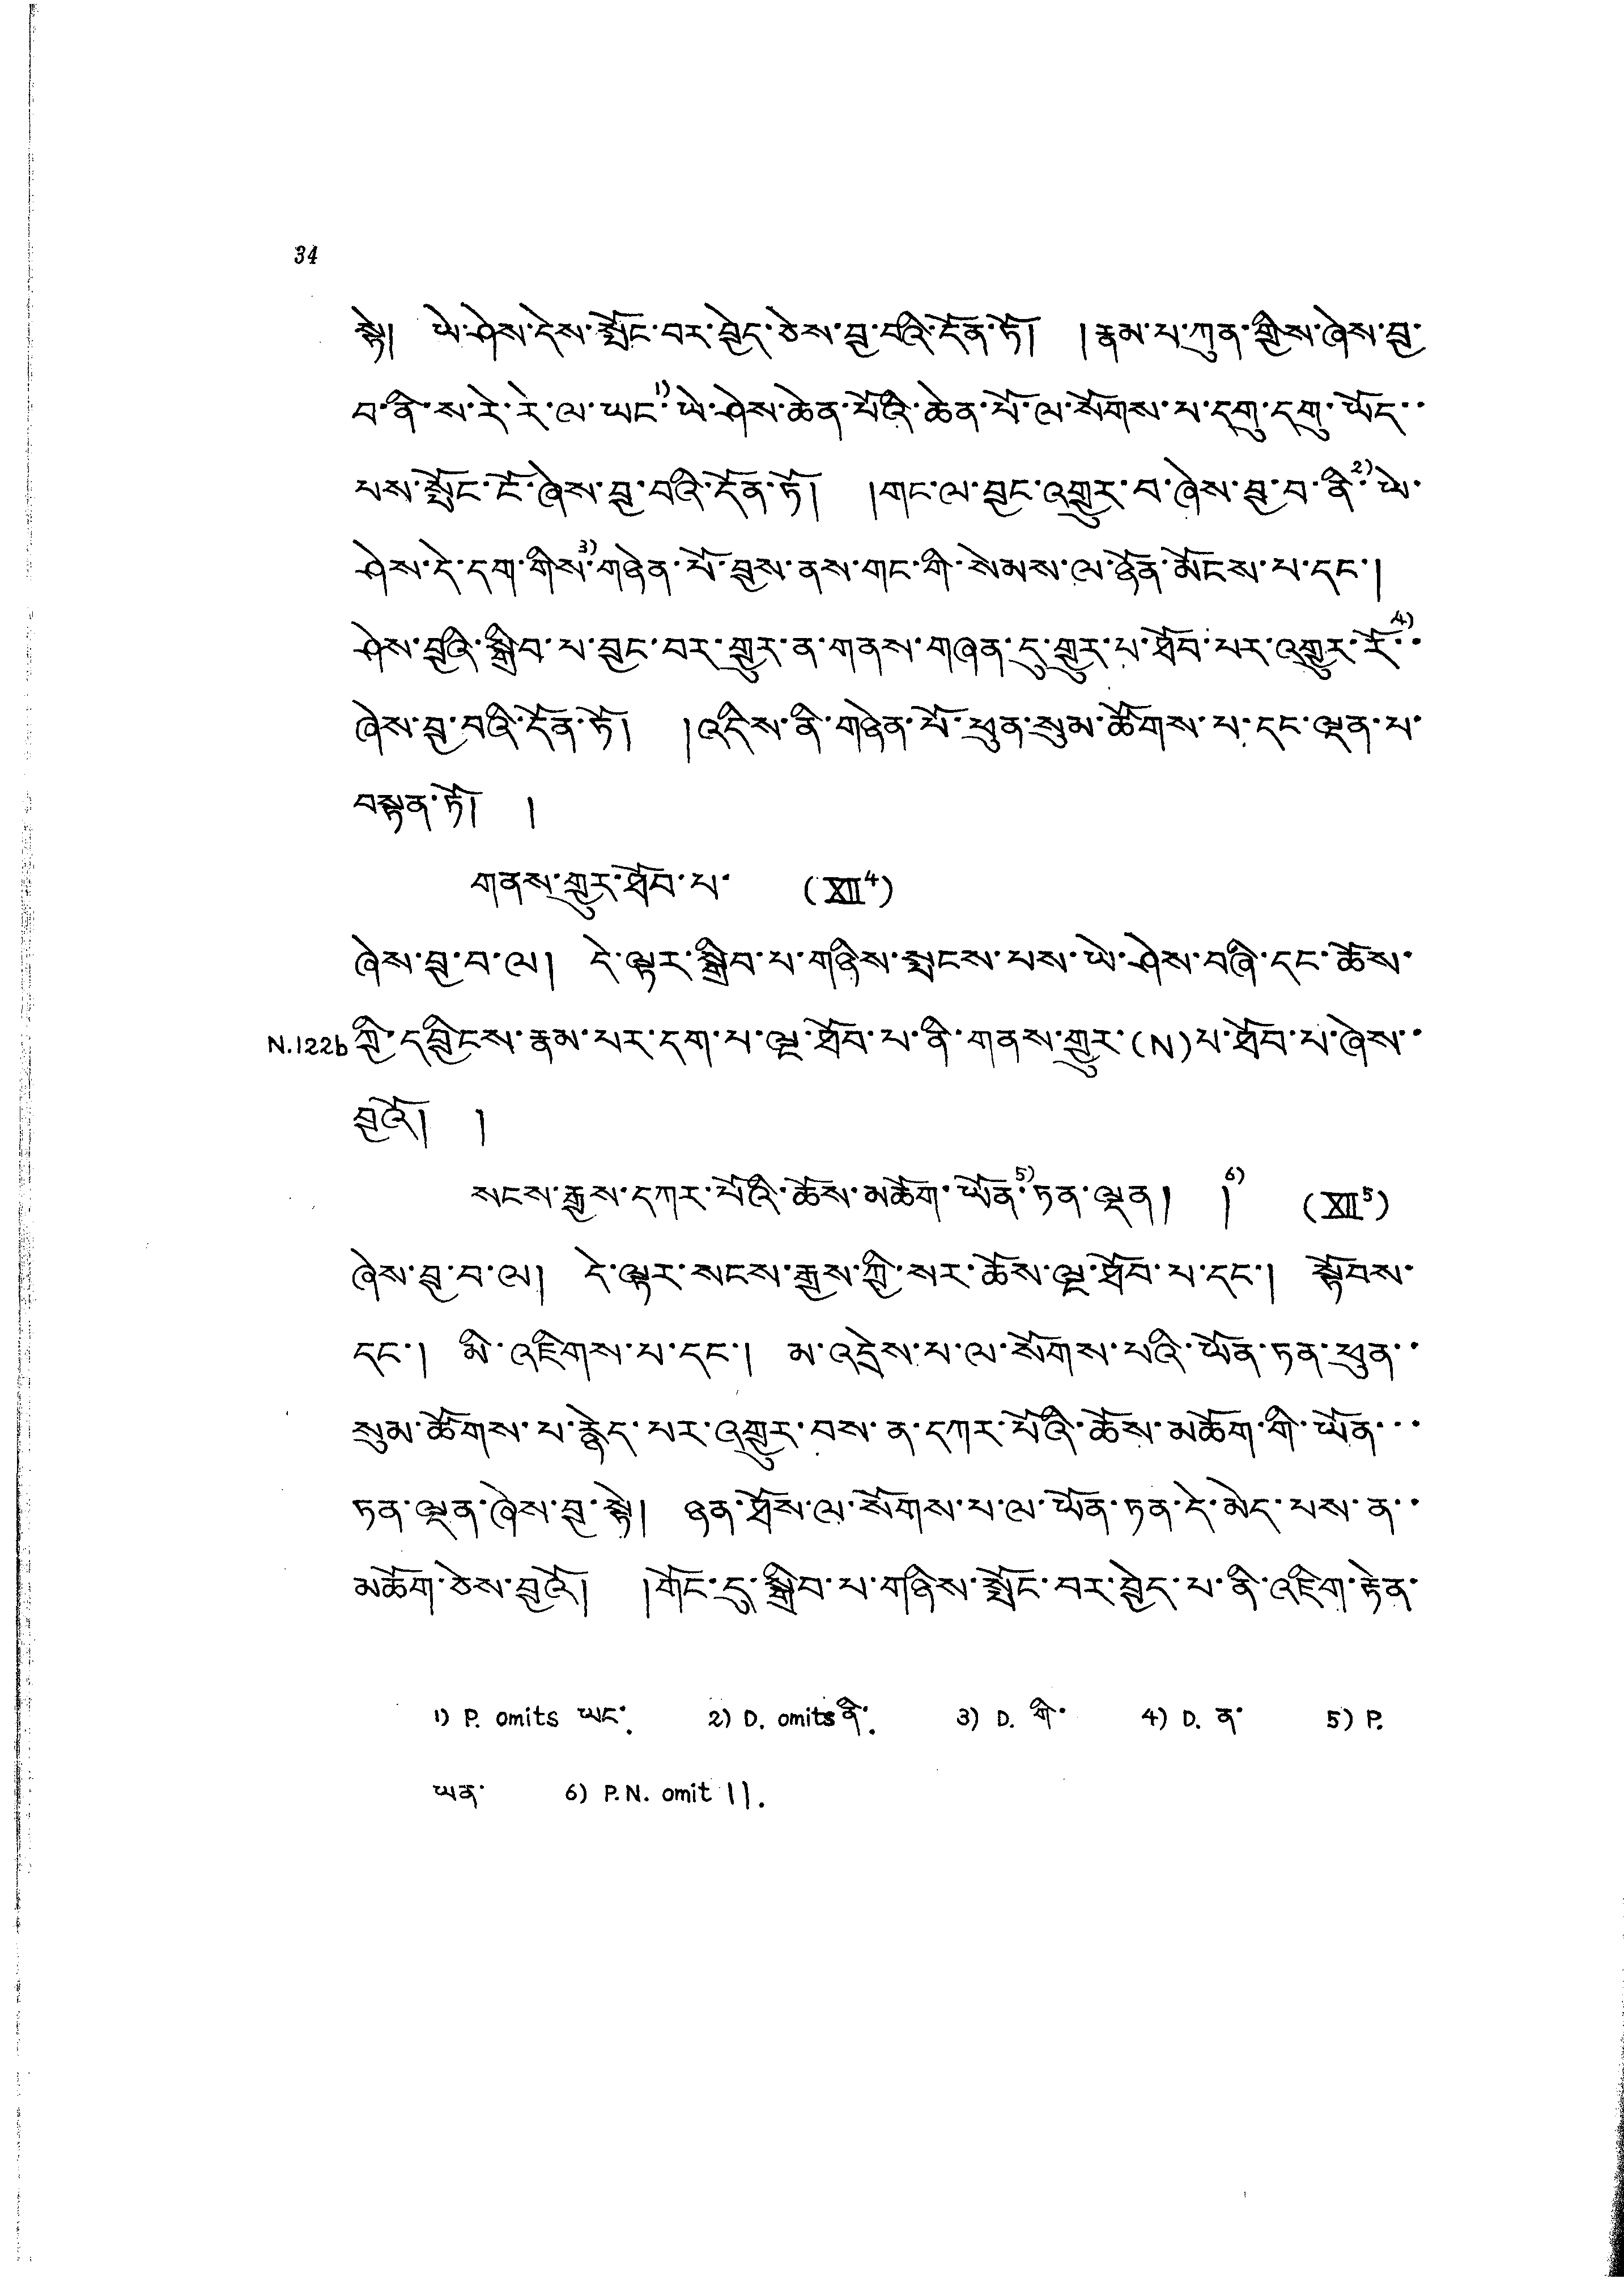 34
སྟེ། ཡེ་ཤེས་དེས་སྤོང་བར་བྱེད་ཅེས་བྱ་བའི་དོན་ཏོ། །རྣམ་པ་ཀུན་གྱིས་ཞེས་བྱ་
བ་ནི་ས་རེ་རེ་ལ་ཡང་1)ཡེ་ཤེས་ཆེན་པོའི་ཆེན་པོ་ལ་སོགས་པ་དགུ་དགུ་ཡོད་་
པས་སྤོང་ངོ་ཞེས་བྱ་བའི་དོན་ཏོ། །གང་ལ་བྱང་འགྱུར་བ་ཞེས་བྱ་བ་ནི་2)ཡེ་
ཤེས་དེ་དག་གིས་3)གཉེན་པོ་བྱས་ནས་གང་གི་སེམས་ལ་ཉོན་མོངས་པ་དང་།
ཤེས་བྱའི་སྒྲིབ་པ་བྱང་བར་གྱུར་ན་གནས་གཞན་དུ་གྱུར་པ་ཐོབ་པར་འགྱུར་རོ་4)་
ཞེས་བྱ་བའི་དོན་ཏོ། །འདིས་ནི་གཉེན་པོ་ཕུན་སུམ་ཚོགས་པ་དང་ལྡན་པ་
བསྟན་ཏོ། །
གནས་གྱུར་ཐོབ་པ་ (XII4)
ཞེས་བྱ་བ་ལ། དེ་ལྟར་སྒྲིབ་པ་གཉིས་སྤངས་པས་ཡེ་ཤེས་བཞི་དང་ཆོས་
N.122b ཀྱི་དབྱིངས་རྣམ་པར་དག་པ་ལྔ་ཐོབ་པ་ནི་གནས་གྱུར་(N)པ་ཐོབ་པ་ཞེས་་
བྱའོ། །
སངས་རྒྱས་དཀར་པོའི་ཆོས་མཆོག་ཡོན་5)ཏན་ལྡན། །6) (XII5)
ཞེས་བྱ་བ་ལ། དེ་ལྟར་སངས་རྒྱས་ཀྱི་སར་ཆོས་ལྔ་ཐོབ་པ་དང་། སྟོབས་
དང་། མི་འཇིགས་པ་དང་། མ་འདྲེས་པ་ལ་སོགས་པའི་ཡོན་ཏན་ཕུན་་
སུམ་ཚོགས་པ་རྙེད་པར་འགྱུར་བས་ན་དཀར་པོའི་ཆོས་མཆོག་གི་ཡོན་་་
ཏན་ལྡན་ཞེས་བྱ་སྟེ། ཉན་ཐོས་ལ་སོགས་པ་ལ་ཡོན་ཏན་དེ་མེད་པས་ན་་
མཆོག་ཅེས་བྱའོ། །གོང་དུ་སྒྲིབ་པ་གཉིས་སྤོང་བར་བྱེད་པ་ནི་འཇིག་རྟེན་
1) P. omits ཡང་. 2) D. omits ནི་. 3) D. གི་ 4) D. ན་ 5) P.
ཡན་ 6) P.N. omit །།.